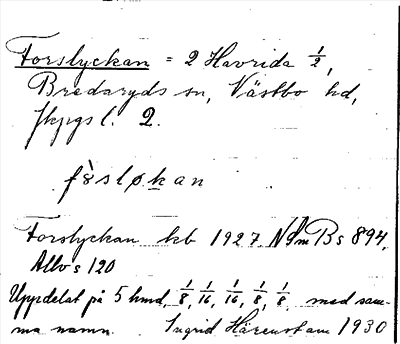 Forslyckan = 2 Havrida 1/2,
Bredaryds sn, Västbo hd,
Jkpgs l. 2.
fòsløkan
Forslyckan kb 1927 NSmBs 894,
Allbo s 120
Uppdelat på 5 hmd, 1/8, 1/16, 1/16, 1/8, 1/8, med sam-
ma namn. Ingrid Härenstam 1930